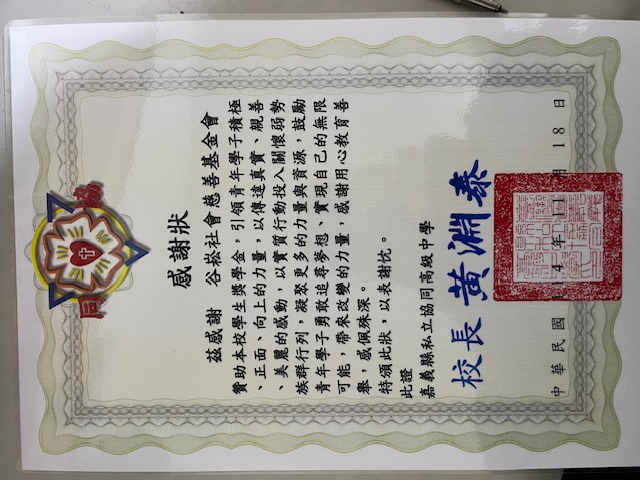 協同
感謝狀
茲感謝 谷崧社會慈善基金會
贊助本校學生獎學金，引領青年學子積極
、正面、向上的力量，以傳達真實、親善
、美麗的感動，以實質行動投入關懷弱勢
族群行列，凝聚更多的力量與音源，鼓勵
青年學子勇敢追尋夢想、實現自己的無限
可能，帶來改變的力量，感謝用心教育善
舉，感佩殊深。
特頒此狀，以表謝忱。
此證
嘉義縣私立協同高級中學
校長 黃淵泰
中華民國 114 年 11 月 18 日